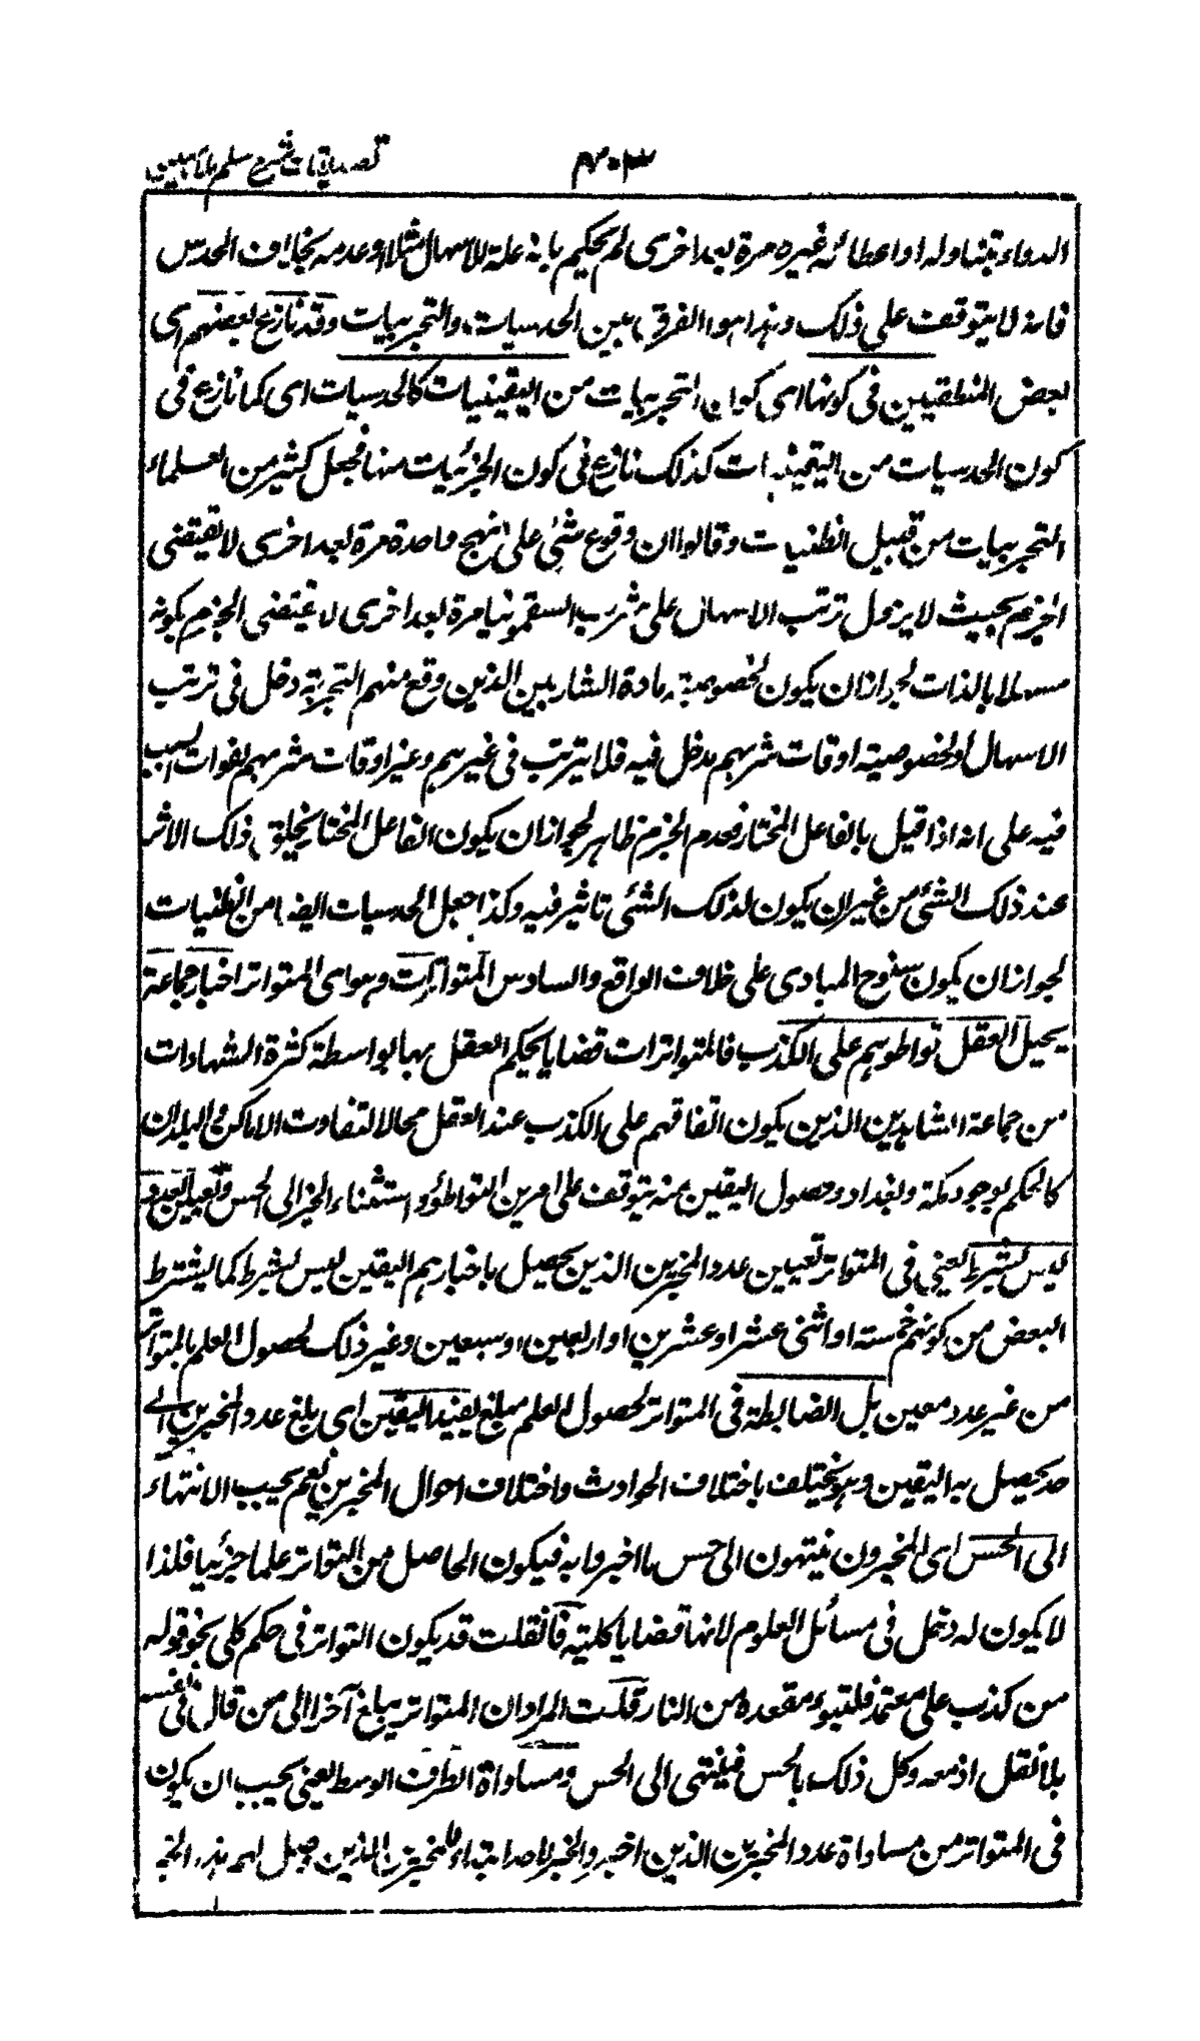 تصديقات شرح سلم ملا مبين
٣٠٣
الدواء بتناوله او اعطائه غيره مرة بعد اخرى لم يحكم بانه علة للاسهال مثلا او عدمه بخلاف الحدس
فانه لا يتوقف على ذلك وهذا هو الفرق بين الحدسيات والتجربيات وقد نازع بعضهم اى
بعض المنطقيين فى كونها اى كون التجربيات من اليقينيات كالحدسيات اى كما نازع فى
كون الحدسيات من اليقينيات كذلك نازع فى كون الجزئيات منها فجعل كثير من العلماء
التجربيات من قبيل الظنيات وقالوا ان وقوع شئ على نهج واحدة مرة بعد اخرى لا يقتضى
الجزم بحيث لا يزول ترتب الاسهال على شرب السقمونيا مرة بعد اخرى لا يقتضى الجزم بكونه
مسهلا بالذات لجواز ان يكون لخصوصية مادة الشاربين الذين وقع منهم التجربة دخل فى ترتب
الاسهال او لخصوصية اوقات شربهم مدخل فيه فلا يترتب فى غيرهم وغير اوقات شربهم لفوات السبب
فيه على انه اذا قيل بالفاعل المختار فعدم الجزم ظاهر لجواز ان يكون الفاعل المختار يخلق ذلك الاثر
عند ذلك الشئ من غير ان يكون لذلك الشئ تاثير فيه وكذا جعل الحدسيات ايضا من الظنيات
لجواز ان يكون سنوح المبادى على خلاف الواقع والسادس المتواترات وهو اى المتواتر اخبار جماعة
يحيل العقل تواطوهم على الكذب فالمتواترات قضايا يحكم العقل بها بواسطة كثرة الشهادات
من جماعة الشاهدين الذين يكون اتفاقهم على الكذب عند العقل محالا لتفاوت الاماكن والبلدان
كالحكم بوجود مكة وبغداد وحصول اليقين منه يتوقف على امرين التواطؤ واستثناء الخبر الى الحس وتعيين العدد
ليس بشرط يعنى فى المتواتر تعيين عدد المخبرين الذين يحصل باخبارهم اليقين ليس بشرط كما يشترط
البعض من كونهم خمسة او اثنى عشر او عشرين او اربعين او سبعين وغير ذلك لحصول العلم بالمتواتر
من غير عدد معين بل الضابطة فى المتواتر لحصول العلم مبلغ يفيد اليقين اى بلغ عدد المخبرين الى
حد يحصل به اليقين وهو يختلف باختلاف الحوادث واختلاف احوال المخبرين نعم يجب الانتهاء
الى الحس اى المخبرون ينتهون الى حس ما اخبروا به فيكون الحاصل من المتواتر علما جزئيا فلذا
لا يكون له دخل فى مسائل العلوم لانها قضايا كلية فان قلت قد يكون التواتر فى حكم كلى نحو قوله
من كذب على معتمدا فليتبوء مقعده من النار قلت المراد ان المتواتر يبلغ آخر الى من قال فى نفسه
بلا نقل اذ معه وكل ذلك بالحس فينتهى الى الحس ومساواة الطرف الوسط يعنى يجب ان يكون
فى المتواتر من مساواة عدد المخبرين الذين اخبروا الخبر لاحد ابتداء للمخبرين الذين وصل لهم هذه الخبر